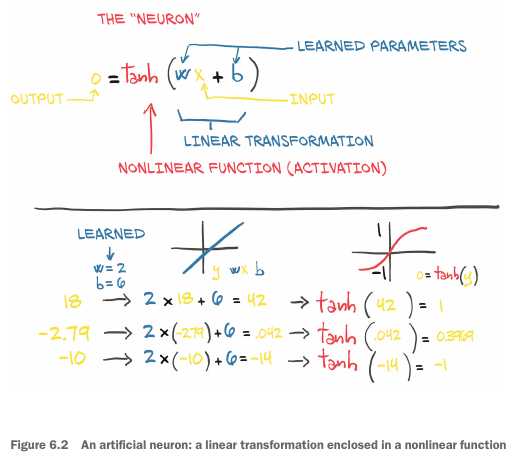 THE "NEURON"
LEARNED PARAMETERS
o = tanh (w x + b)
OUTPUT
INPUT
LINEAR TRANSFORMATION
NONLINEAR FUNCTION (ACTIVATION)
LEARNED
w=2
b=6
y wx b
1
-1
o=tanh(y)
18 → 2 x 18 + 6 = 42 → tanh (42) = 1
-2.79 → 2 x (-2.79) + 6 = .042 → tanh (.042) = 0.3969
-10 → 2 x (-10) + 6 = -14 → tanh (-14) = -1
Figure 6.2 An artificial neuron: a linear transformation enclosed in a nonlinear function